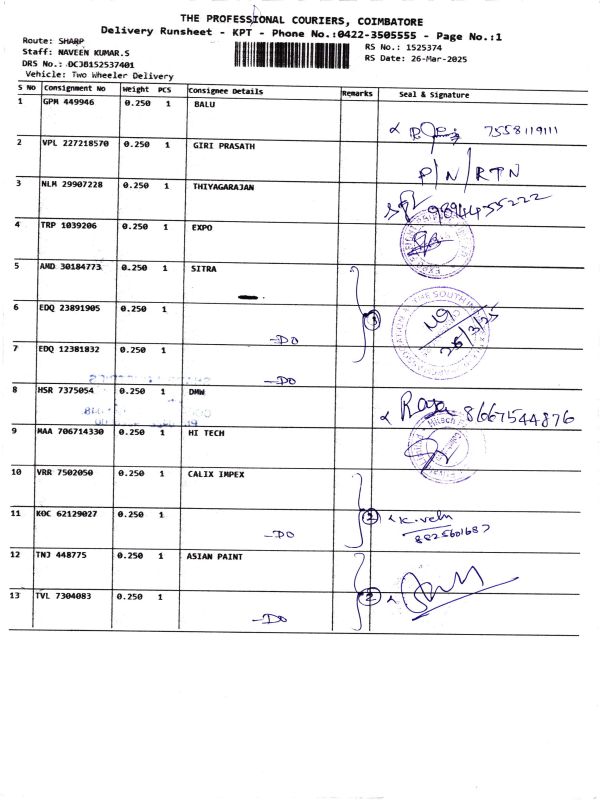 THE PROFESSIONAL COURIERS, COIMBATORE
Delivery Runsheet - KPT - Phone No.:0422-3505555 - Page No.:1
Route: SHARP
RS No.: 1525374
Staff: NAVEEN KUMAR.S
RS Date: 26-Mar-2025
DRS No.: DCJB152537401
Vehicle: Two Wheeler Delivery
S No Consignment No Weight PCS Consignee Details Remarks Seal & Signature
1 GPM 449946 0.250 1 BALU
7558119111
2 VPL 227218570 0.250 1 GIRI PRASATH
P/N/RTN
3 NLM 29907228 0.250 1 THIYAGARAJAN
9894455222
4 TRP 1039206 0.250 1 EXPO
5 AMD 30184773 0.250 1 SITRA
6 EDQ 23891905 0.250 1 -DO
3
26/3/25
7 EDQ 12381832 0.250 1 -DO
8 HSR 7375054 0.250 1 DMW
Raja 8667544876
9 MAA 706714330 0.250 1 HI TECH
10 VRR 7502050 0.250 1 CALIX IMPEX
11 KOC 62129027 0.250 1 -DO 2 K.velu
8825601687
12 TNJ 448775 0.250 1 ASIAN PAINT
13 TVL 7304083 0.250 1 -DO 2